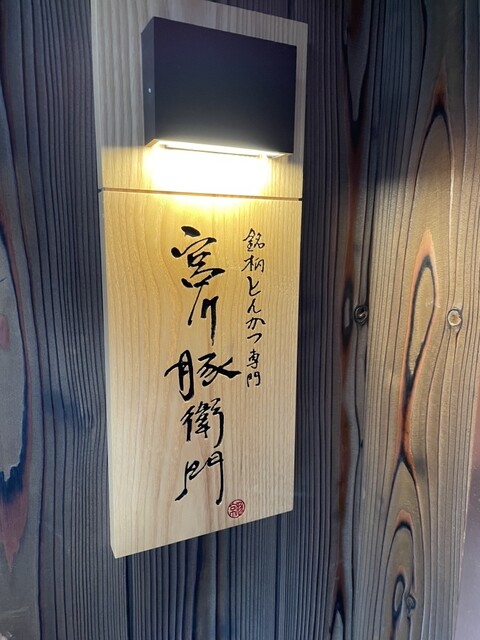 銘柄とんかつ専門
宮川豚衛門